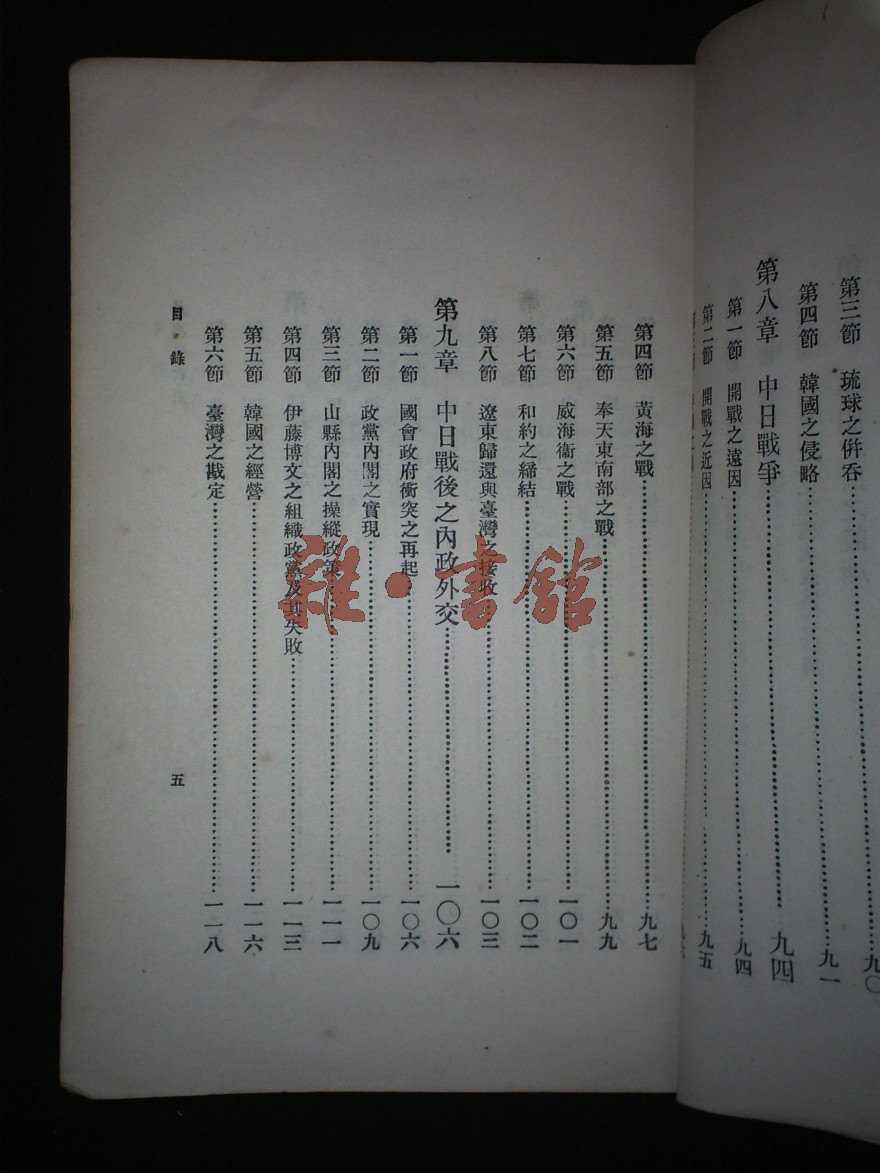 第三節 琉球之併吞 九〇
第四節 韓國之侵略 九一
第八章 中日戰爭 九四
第一節 開戰之遠因 九四
第二節 開戰之近因 九五
第四節 黃海之戰 九七
第五節 奉天東南部之戰 九九
第六節 威海衞之戰 一〇一
第七節 和約之締結 一〇二
第八節 遼東歸還與臺灣之接收 一〇三
第九章 中日戰後之內政外交 一〇六
第一節 國會政府衝突之再起 一〇六
第二節 政黨內閣之實現 一〇九
第三節 山縣內閣之操縱政策 一一一
第四節 伊藤博文之組織政黨及其失敗 一一三
第五節 韓國之經營 一一六
第六節 臺灣之戡定 一一八
目錄 五
雜·書館